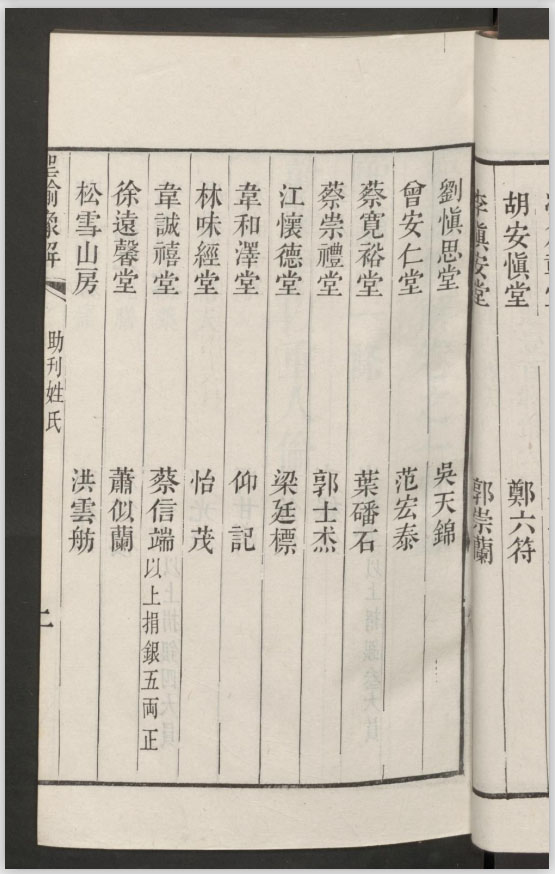 胡安愼堂 鄭六符
李愼安堂 郭崇蘭
劉愼思堂 吳天錦
曾安仁堂 范宏泰
蔡寬裕堂 葉磻石
蔡崇禮堂 郭士杰
江懷德堂 梁廷標
韋和澤堂 仰甘記
林味經堂 怡光茂
韋誠禧堂 蔡信端以上捐銀五両正
徐遠馨堂 蕭似蘭
松雪山房 洪雲舫
聖諭像解 助刊姓氏